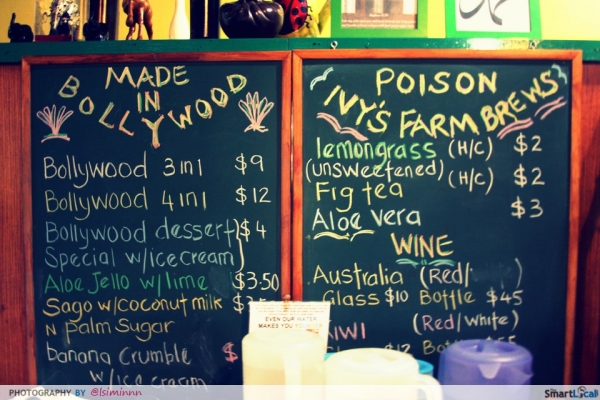 MADE
IN
BOLLYWOOD
Bollywood 3 in 1 $9
Bollywood 4 in 1 $12
Bollywood dessert) $4
Special w/ice cream)
Aloe Jello w/lime $3.50
Sago w/coconut milk
n Palm Sugar
banana Crumble $
w/ice cream
POISON
IVY'S FARM BREWS
lemongrass (H/C) $2
(unsweetened) (H/C) $2
Fig tea
Aloe Vera $3
WINE
Australia (Red/
Glass $10 Bottle $45
(Red/White)
EVEN OUR WATER
MAKES YOU
PHOTOGRAPHY BY @lsiminnn
SmartLocal